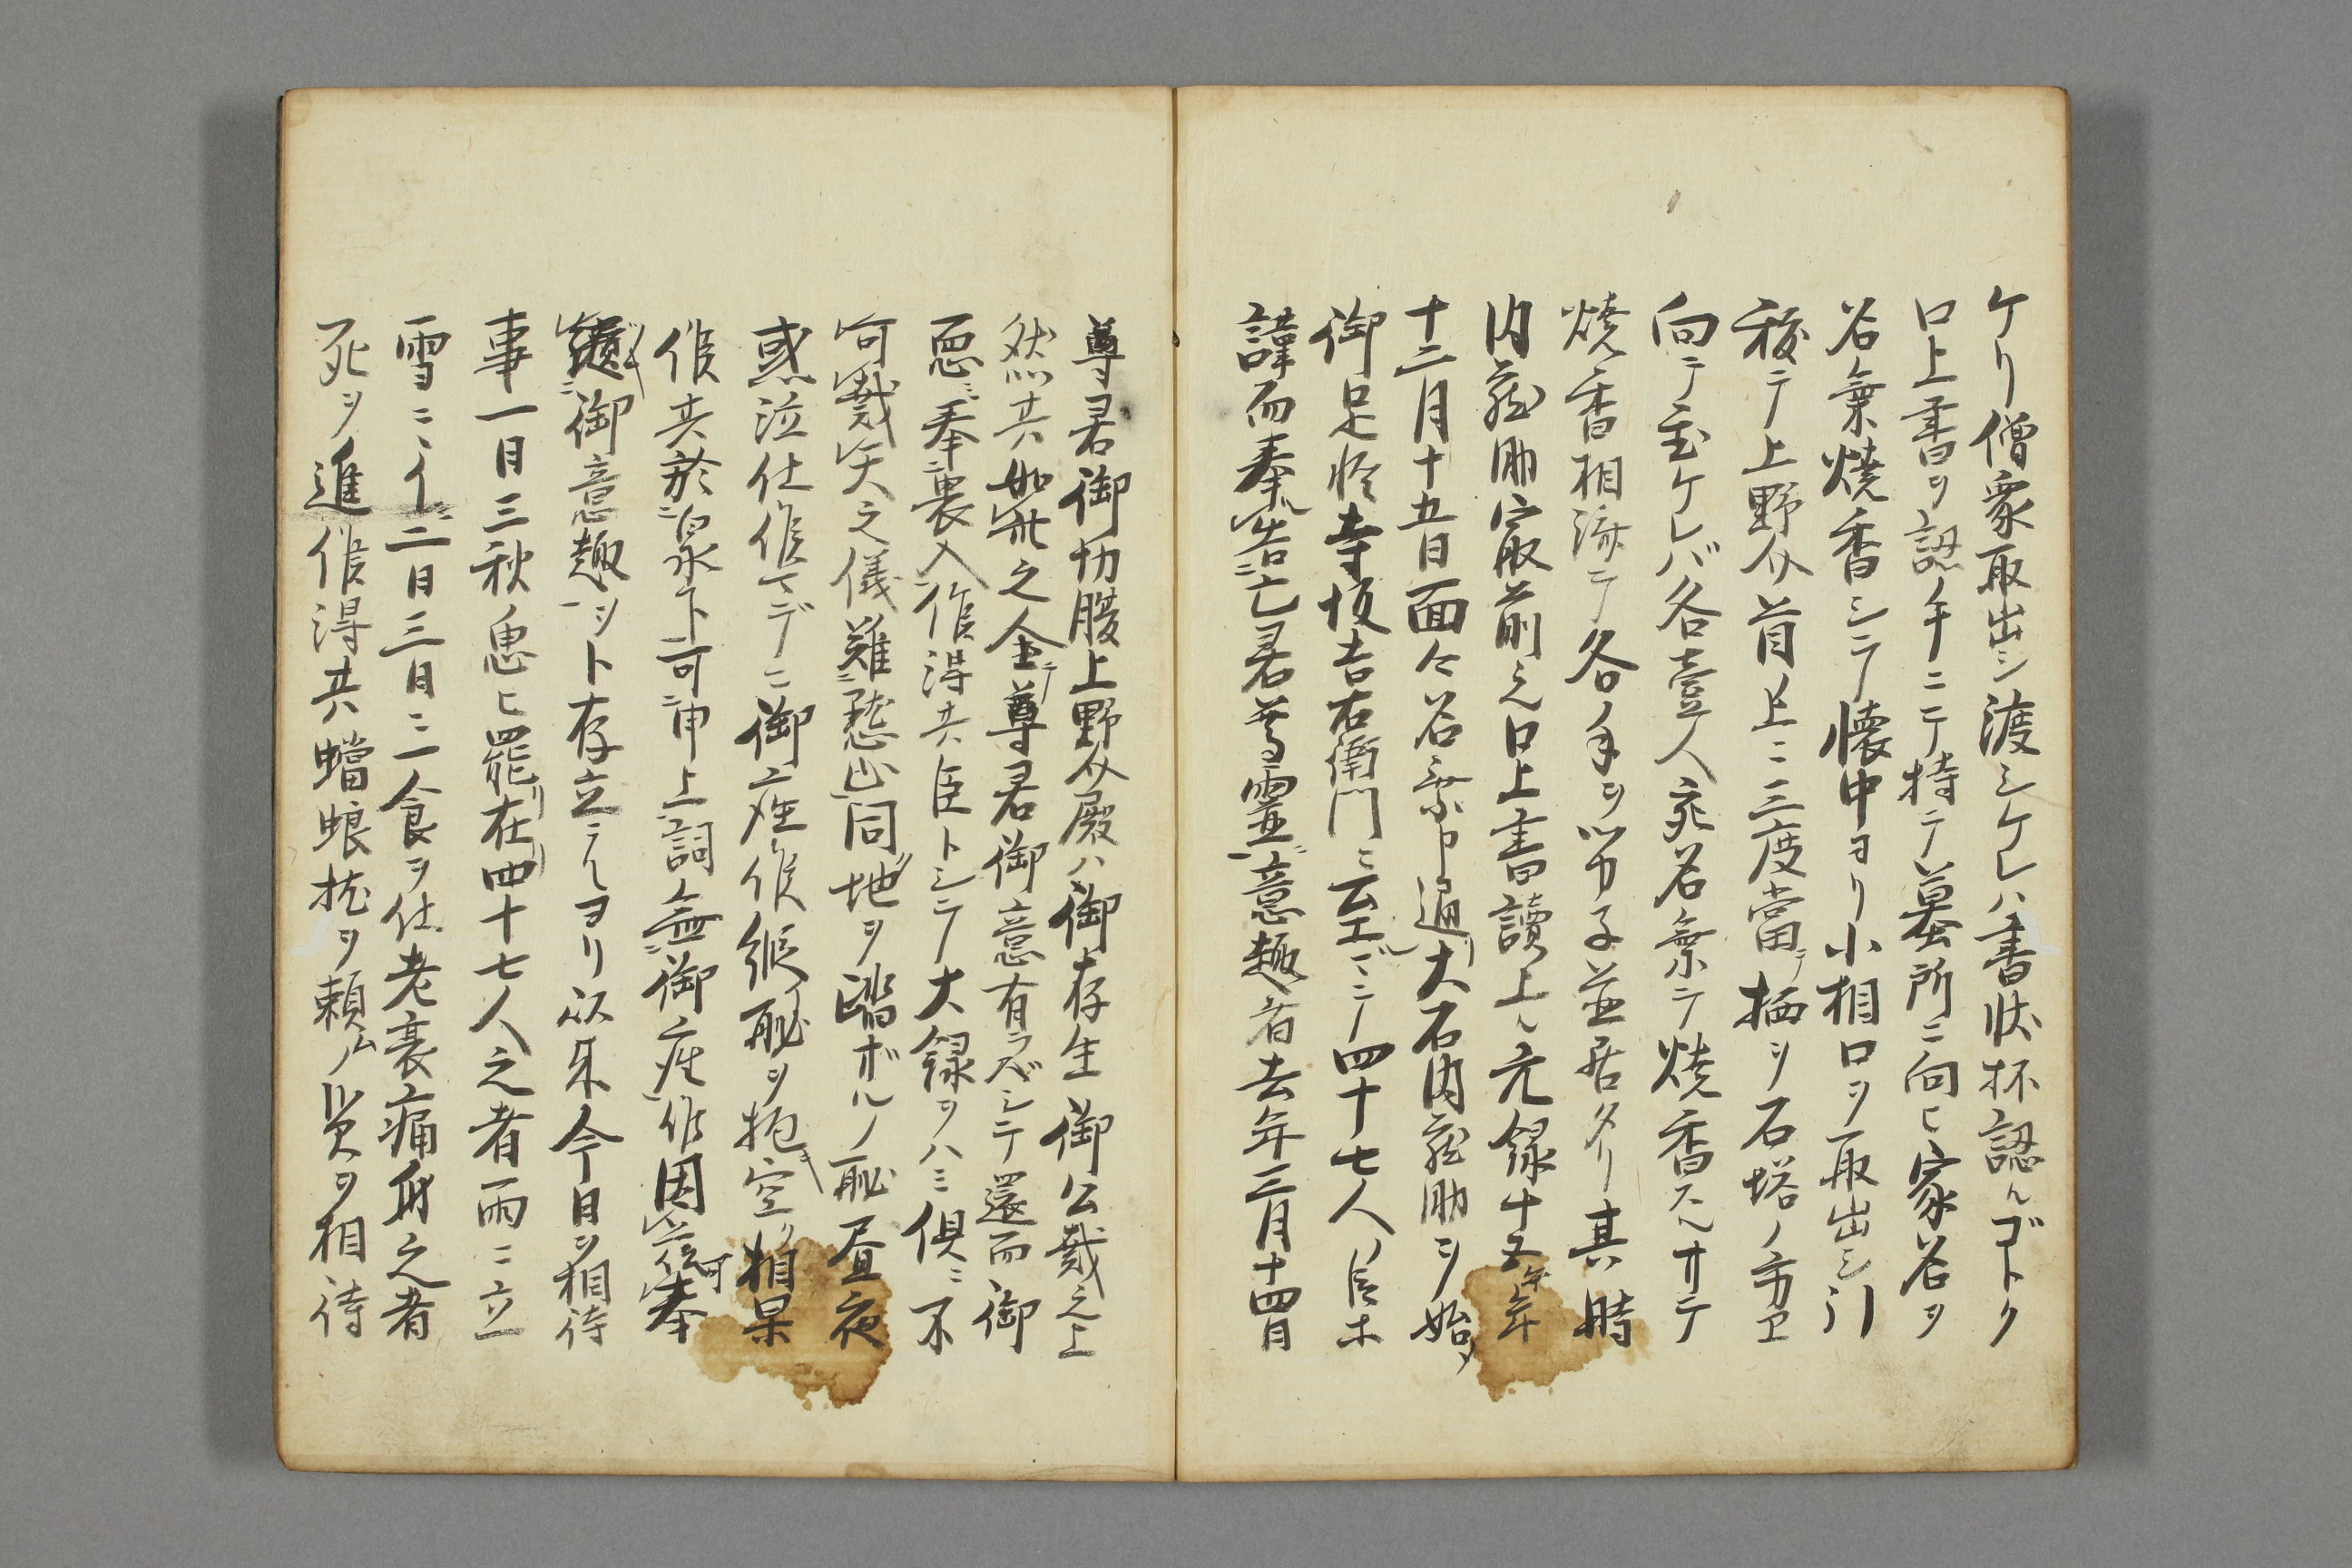 ケリ僧衆取出シ渡シケレハ書状杯認ルゴトク
口上書ヲ認メ手ニテ持テ墓所ニ向ヒ家名ヲ
名乗焼香シテ懐中ヨリ小相口ヲ取出シ引
秡テ上野介首上ニ三度當テ栖ヲ石塔ノ方エ
向テ置ケレバ各壹人宛名乗テ焼香スルオテ
焼香相済テ各ノ手ヲツカ子並居タリ其時
内蔵助最前之口上書讀上ル元録十五午年
十二月十五日面々名乗申通リ大石内蔵助ヲ始メ
御足軽寺坂吉右衛門ニ云エル迄ニテ四十七人ノ臣等
謹而奉告亡君尊霊意趣者去年三月十四日
尊君御切腹上野介殿ハ御存生御公裁之上
然共如此之企テ尊君御意有ラズシテ還而御
悪ミ奉裏入候得共臣トシテ大録ヲハミ倶ニ不
可戴天之儀難黙止同地ヲ踏ボルノ恥昼夜
惑泣仕候マデニ御座候縦恥ヲ抱キ空ク相果
候共於泉下可申上詞無御座候因茲可奉
継御意趣ヲト存立シヨリ以来今日ヲ相待
事一日三秋ノ思ヒ罷在リ四十七人之者雨ニ立
雪ニ イ二日三日ニ一食ヲ仕老衰痛身之者
死ヲ進候得共蟷蜋 ヲ頼ムノ笑ヲ相待